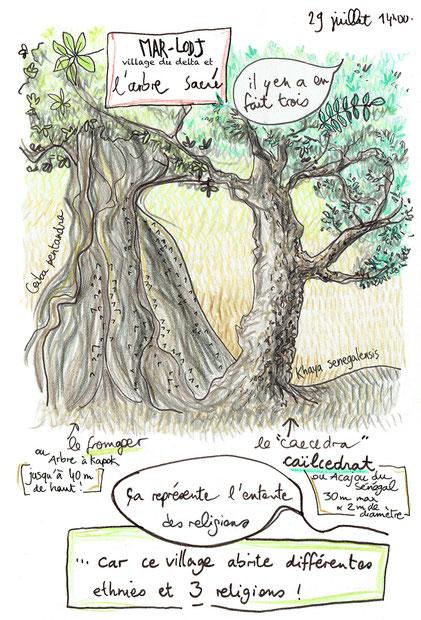 29 juillet 14h00.
MAR-LODJ
village du delta et
l'arbre sacré
il y en a en
fait trois
Ceiba pentandra
Khaya senegalensis
le fromager
ou
Arbre à kapok
jusqu'à 40 m
de haut !
le "caecedra"
caïlcedrat
ou Acajou du
Sénégal
30 m max
x 2 m de
diamètre
Ça représente l'entente
des religions
... car ce village abrite différentes
ethnies et 3 religions !